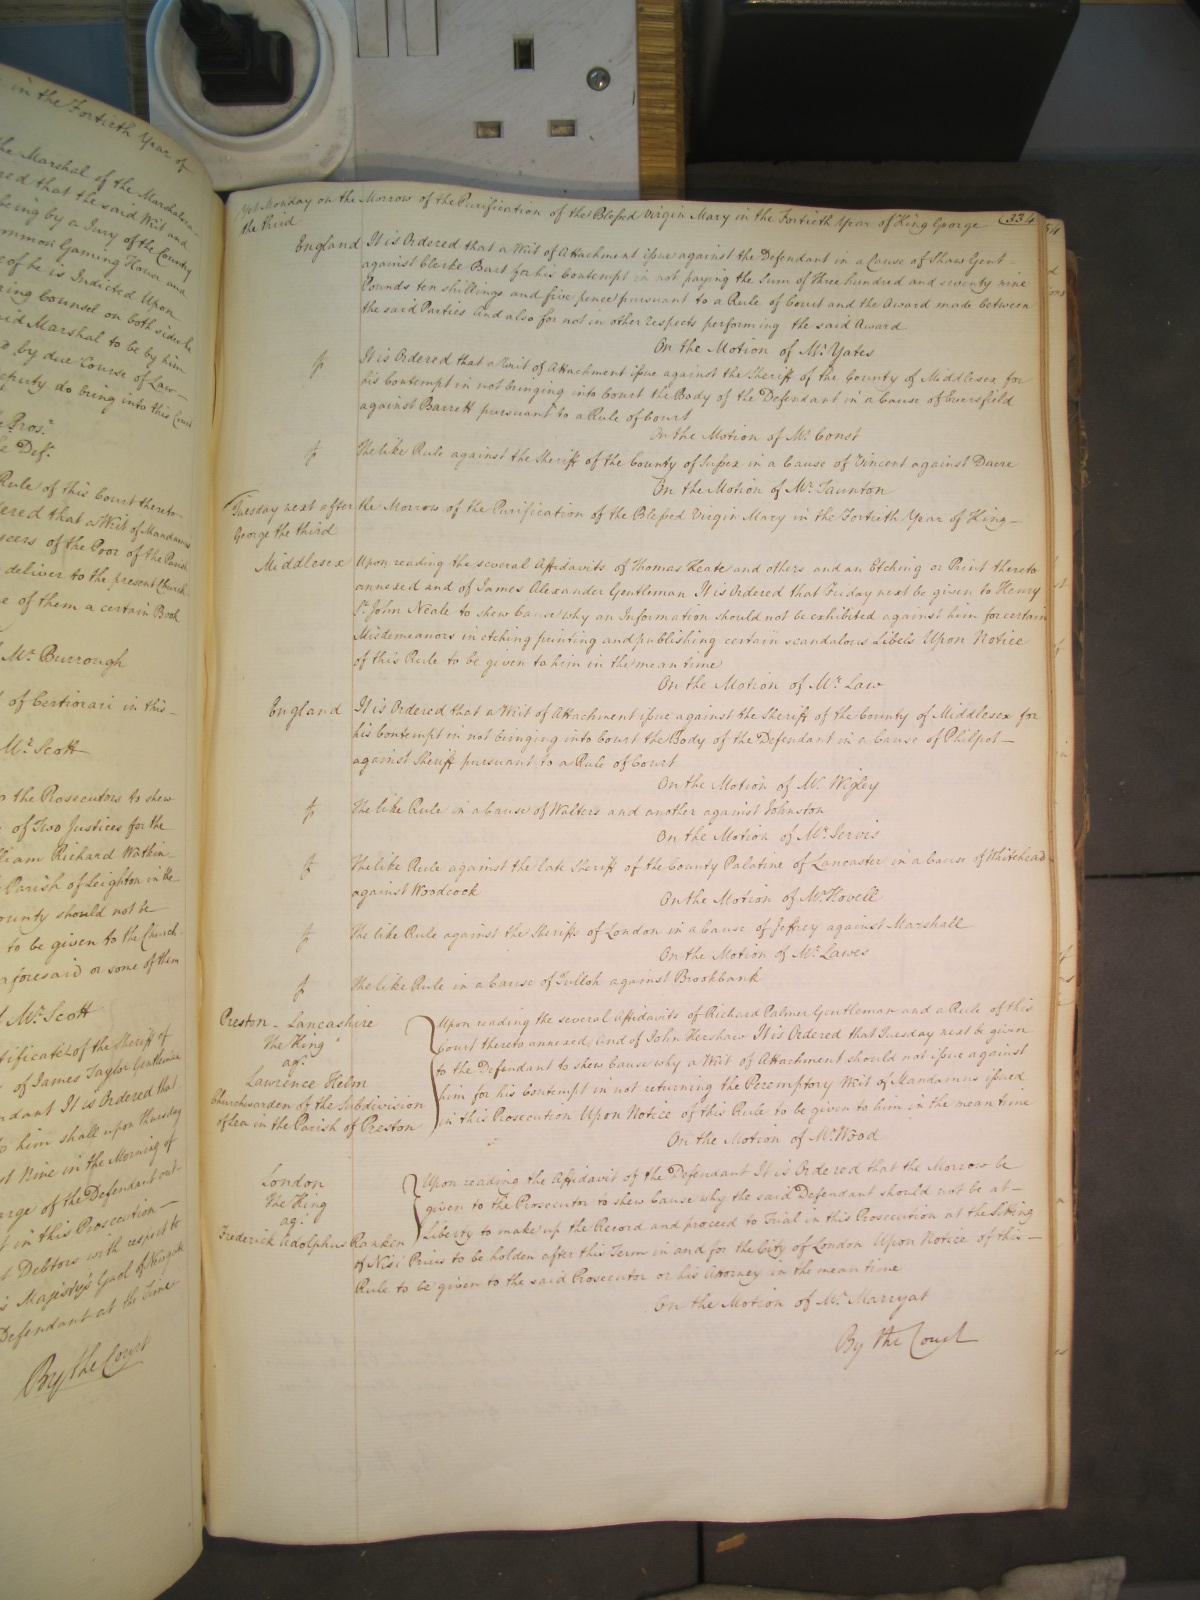 in the Fortieth Year of
the Marshal of the Marshalsea
red that the said Writ and
being by a Jury of the Country
ommon Gaming House and
of he is Indicted Upon
ring Counsel on both sides he
aid Marshal to be by him
by due Course of Law
eputy do bring into this Court
Pros.r
Def.t
Rule of this Court thereto
ered that a Writ of Mandamus
seers of the Poor of the Parish
deliver to the present Church
e of them a certain Book
Mr. Burrough
of Certiorari in this
Mr. Scott
the Prosecutors to shew
of Two Justices for the
liam Richard Watkin
Parish of Leighton in the
ounty should not be
to be given to the Church
aforesaid or some of them
Mr. Scott
tificate of the Sheriff of
of James Taylor Gentleman
ndant It is Ordered that
him shall upon thursday
st Nine in the Morning of
arge of the Defendant out
in this Prosecution
Debtors with respect to
Majesty's Gaol of Newgate
Defendant at the time
By the Court
Yet Monday on the Morrow of the Purification of the Blessed Virgin Mary in the Fortieth Year of King George
the third
334
England It is Ordered that a Writ of Attachment issue against the Defendant in a Cause of Shaw Gent
against Clerke Bart for his Contempt in not paying the Sum of three hundred and seventy nine
Pounds ten shillings and five pence pursuant to a Rule of Court and the Award made between
the said Parties And also for not in other respects performing the said Award
On the Motion of Mr. Yates
It is Ordered that a Writ of Attachment issue against the Sheriff of the County of Middlesex for
his Contempt in not bringing into Court the Body of the Defendant in a Cause of Eversfield
against Barrett pursuant to a Rule of Court
On the Motion of Mr. Const
The like Rule against the Sheriff of the County of Sussex in a Cause of Vincent against Dacre
On the Motion of Mr. Taunton
Tuesday next after the Morrow of the Purification of the Blessed Virgin Mary in the Fortieth Year of King
George the third
Middlesex Upon reading the several Affidavits of Thomas Keate and others and an Etching or Print thereto
annexed and of James Alexander Gentleman It is Ordered that Friday next be given to Henry
St. John Neale to shew Cause why an Information should not be exhibited against him for certain
Misdemeanors in etching printing and publishing certain scandalous Libels Upon Notice
of this Rule to be given to him in the mean time
On the Motion of Mr. Law
England It is Ordered that a Writ of Attachment issue against the Sheriff of the County of Middlesex for
his Contempt in not bringing into Court the Body of the Defendant in a Cause of Philpot
against Sheriff pursuant to a Rule of Court
On the Motion of Mr. Wigley
The like Rule in a Cause of Walters and another against Johnston
On the Motion of Mr. Jervis
The like Rule against the late Sheriff of the County Palatine of Lancaster in a Cause of Whitehead
against Woodcock
On the Motion of Mr. Hovell
The like Rule against the Sheriffs of London in a Cause of Jeffrey against Marshall
On the Motion of Mr. Lawes
The like Rule in a Cause of Tulloh against Brookbank
Preston - Lancashire
The King
ag.t
Lawrence Helm
Churchwarden of the Subdivision
of Lea in the Parish of Preston
Upon reading the several Affidavits of Richard Palmer Gentleman and a Rule of this
Court thereto annexed And of John Kershaw It is Ordered that Tuesday next be given
to the Defendant to shew Cause why a Writ of Attachment should not issue against
him for his Contempt in not returning the Peremptory Writ of Mandamus issued
in this Prosecution Upon Notice of this Rule to be given to him in the mean time
On the Motion of Mr. Wood
London
The King
ag.t
Frederick Adolphus Ranken
Upon reading the Affidavit of the Defendant It is Ordered that the Morrow be
given to the Prosecutor to shew Cause why the said Defendant should not be at
Liberty to make up the Record and proceed to Trial in this Prosecution at the Sitting
of Nisi Prius to be holden after this Term in and for the City of London Upon Notice of this
Rule to be given to the said Prosecutor or his Attorney in the mean time
On the Motion of Mr. Marryat
By the Court